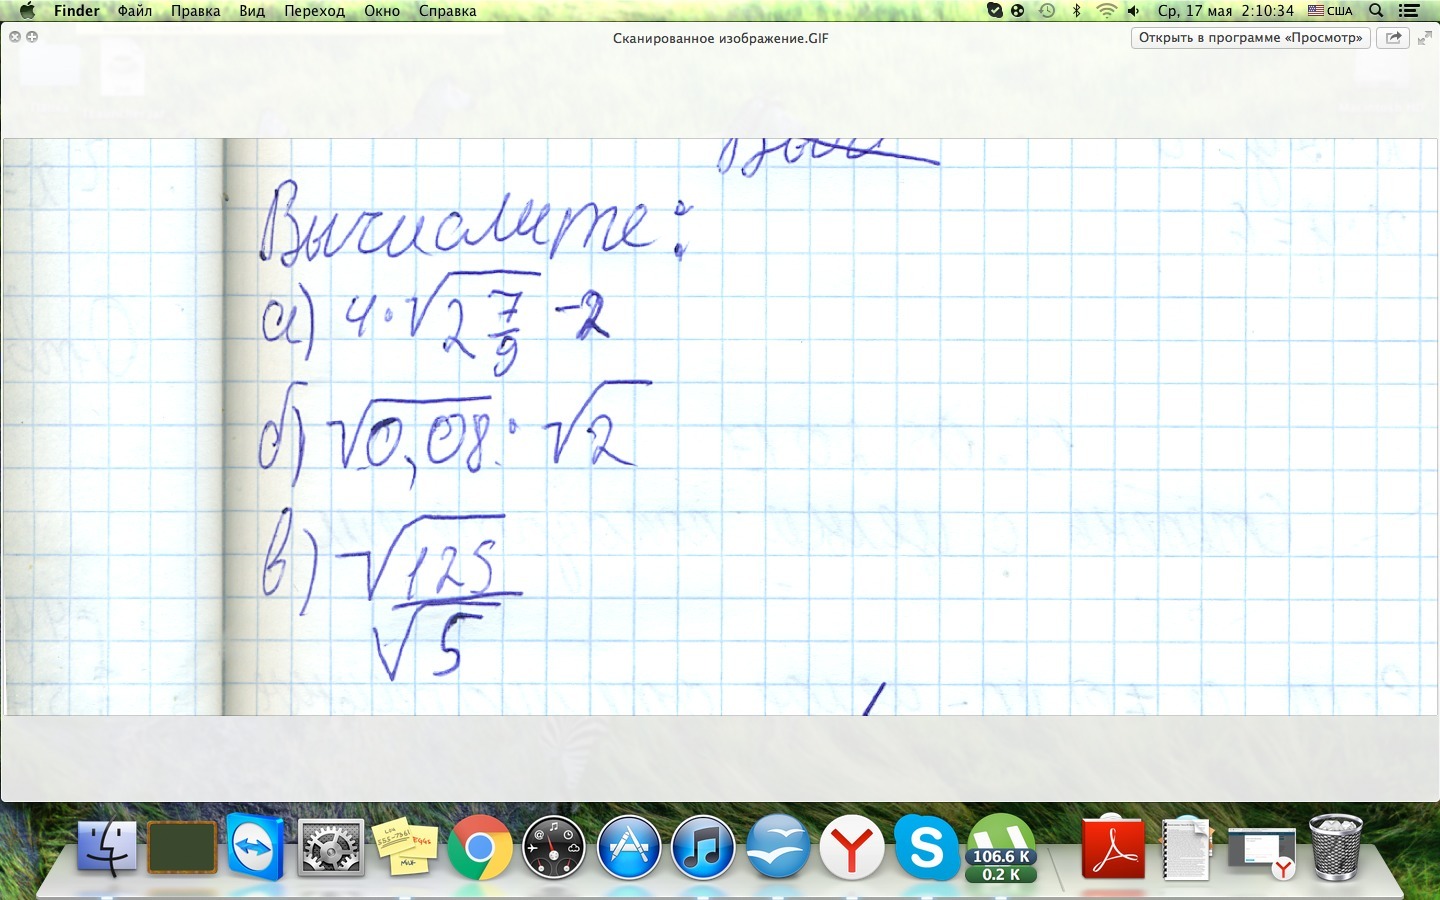 Finder Файл Правка Вид Переход Окно Справка Ср, 17 мая 2:10:34 США
Сканированное изображение.GIF Открыть в программе «Просмотр»
Вычислите:
а) 4·√2 7/9 -2
б) √0,08 · √2
в) √125
√5
106.6 K
0.2 K